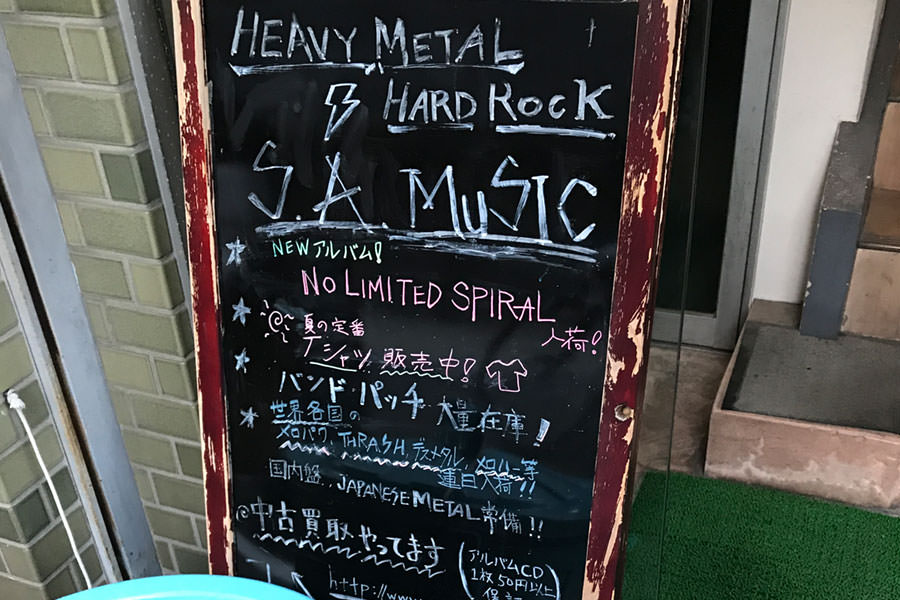 HEAVY METAL
HARD ROCK
S.A. MUSIC
NEW アルバム!
NO LIMITED SPIRAL
入荷!
夏の定番
Tシャツ 販売中!
バンド・パッチ 大量在庫!
世界各国の
メロパワ、THRASH、デスメタル、メロハー等
入荷!!
国内盤、JAPANESE METAL常備!!
@中古買取やってます
(アルバムCD
1枚50円以上
http://www